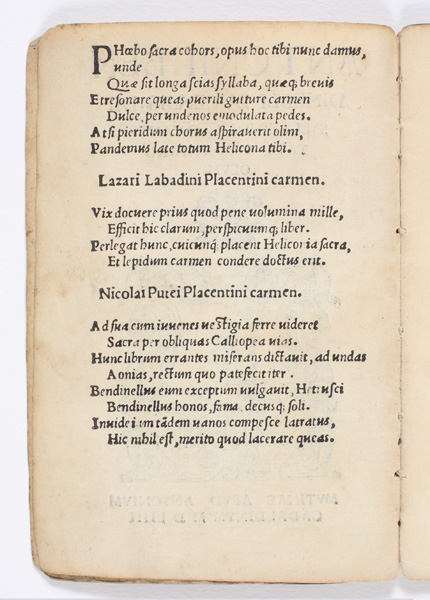 PHœbo sacra cohors, opus hoc tibi nunc damus,
unde
Quæ sit longa scias syllaba, quæq; breuis
Et resonare queas puerili gutture carmen
Dulce, per undenos emodulata pedes.
At si pieridum chorus aspirauerit olim,
Pandemus late totum Helicona tibi.
Lazari Labadini Placentini carmen.
Vix docuere prius quod pene uolumina mille,
Efficit hic clarum, perspicuumq; liber.
Perlegat hunc, cuicunq; placent Heliconia sacra,
Et lepidum carmen condere doctus erit.
Nicolai Putei Placentini carmen.
Ad sua cum iuuenes uestigia ferre uideret
Sacra per obliquas Calliopea uias.
Hunc librum errantes miserans dictauit, ad undas
Aonias, rectum quo patefecit iter.
Bendinellus eum exceptum uulgauit, Hetrusci
Bendinellus honos, fama, decusq; soli.
Inuide iam tādem uanos compesce latratus,
Hic nihil est, merito quod lacerare queas.